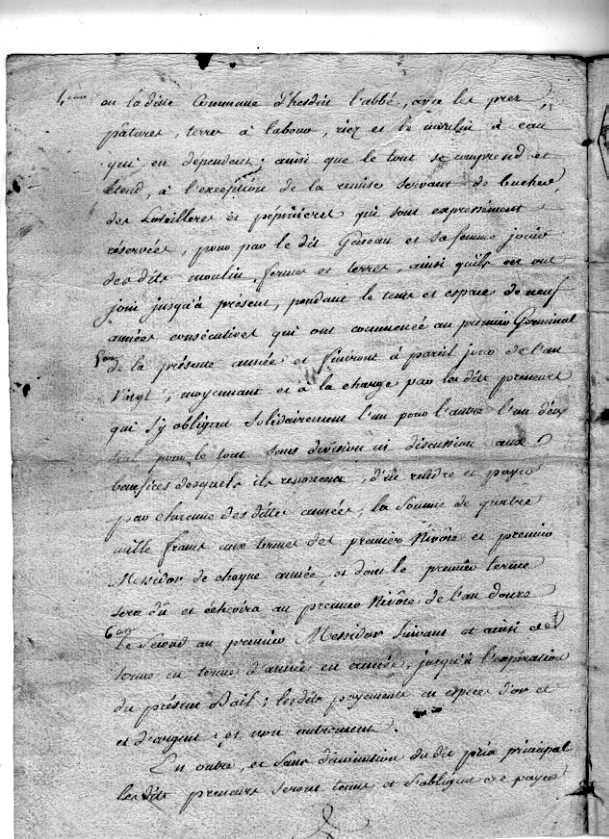 en la ditte Commune d'hesdin l'abbé, avec les prez
pâtures, terres à labour, riez et le moulin à eau
qui en dependent; ainsi que le tout se comprend et
étend, à l'exception de la remise servant de bucher,
des et pépinieres qui sont expressément
réservées, pour par le dit et sa femme jouir
des dits moulin, ferme et terres, ainsi quils en ont
joui jusqu'à présent, pendant le tems et espace de neuf
années consécutives qui ont commencé au premier Germinal
de la présente année et finiront à pareil jour de l'an
Vingt, moyennant et à la charge par les dits preneurs
qui s'y obligent Solidairement l'un pour l'autre l'un d'eux
seul pour le tout sans division ni discussion aux
benefices desquels ils renoncent, d'en rendre et payer
par chacune des dittes années, la Somme de quatre
mille francs aux termes des premier Nivôse et premier
Messidor de chaque année et dont le premier terme
sera dû et échoira au premier Nivôse de l'an douze
le Second au premier Messidor Suivant et ainsi de
terme en terme d'année en année, jusqu'à l'expiration
du présent Bail; lesdits payements en espece d'or et
et d'argent et non autrement.
En outre, et Sans diminution du dit prix principal
les dits preneurs seront tenus et s'obligent de payer